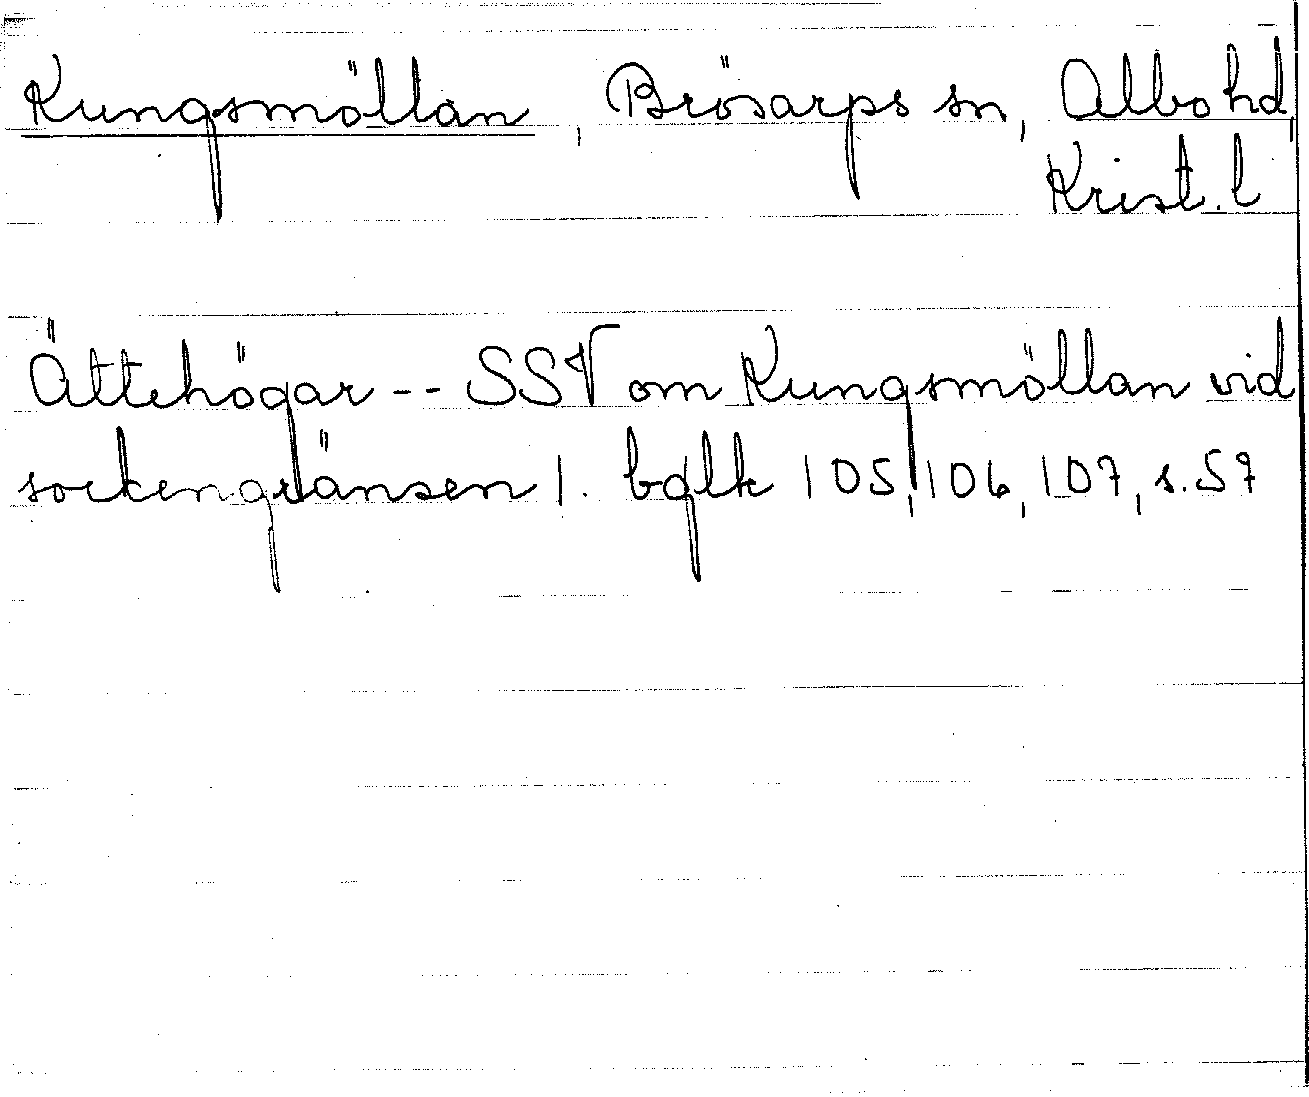 Kungsmöllan, Brösarps sn, Albo hd,
Krist. l
Ättehögar -- SSV om Kungsmöllan vid
sockengränsen |. bglk 105, 106, 107, s. 57